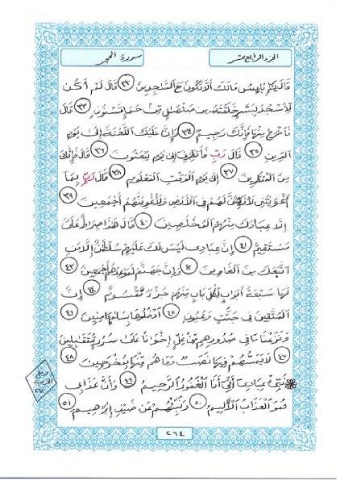 الجزء الرابع عشر
سورة الحجر
قَالَ يَا إِبْلِيسُ مَا لَكَ أَلَّا تَكُونَ مَعَ السَّاجِدِينَ ٣٢ قَالَ لَمْ أَكُن
لِّأَسْجُدَ لِبَشَرٍ خَلَقْتَهُ مِن صَلْصَالٍ مِّنْ حَمَإٍ مَّسْنُونٍ ٣٣ قَالَ
فَاخْرُجْ مِنْهَا فَإِنَّكَ رَجِيمٌ ٣٤ وَإِنَّ عَلَيْكَ اللَّعْنَةَ إِلَى يَوْمِ
الدِّينِ ٣٥ قَالَ رَبِّ فَأَنظِرْنِي إِلَى يَوْمِ يُبْعَثُونَ ٣٦ قَالَ فَإِنَّكَ
مِنَ الْمُنظَرِينَ ٣٧ إِلَى يَوْمِ الْوَقْتِ الْمَعْلُومِ ٣٨ قَالَ رَبِّ بِمَا
أَغْوَيْتَنِي لَأُزَيِّنَنَّ لَهُمْ فِي الْأَرْضِ وَلَأُغْوِيَنَّهُمْ أَجْمَعِينَ ٣٩
إِلَّا عِبَادَكَ مِنْهُمُ الْمُخْلَصِينَ ٤٠ قَالَ هَذَا صِرَاطٌ عَلَيَّ
مُسْتَقِيمٌ ٤١ إِنَّ عِبَادِي لَيْسَ لَكَ عَلَيْهِمْ سُلْطَانٌ إِلَّا مَنِ
اتَّبَعَكَ مِنَ الْغَاوِينَ ٤٢ وَإِنَّ جَهَنَّمَ لَمَوْعِدُهُمْ أَجْمَعِينَ ٤٣
لَهَا سَبْعَةُ أَبْوَابٍ لِّكُلِّ بَابٍ مِّنْهُمْ جُزْءٌ مَّقْسُومٌ ٤٤ إِنَّ
الْمُتَّقِينَ فِي جَنَّاتٍ وَعُيُونٍ ٤٥ ادْخُلُوهَا بِسَلَامٍ آمِنِينَ ٤٦
وَنَزَعْنَا مَا فِي صُدُورِهِم مِّنْ غِلٍّ إِخْوَانًا عَلَى سُرُرٍ مُّتَقَابِلِينَ
٤٧ لَا يَمَسُّهُمْ فِيهَا نَصَبٌ وَمَا هُم مِّنْهَا بِمُخْرَجِينَ ٤٨
نَبِّئْ عِبَادِي أَنِّي أَنَا الْغَفُورُ الرَّحِيمُ ٤٩ وَأَنَّ عَذَابِي
هُوَ الْعَذَابُ الْأَلِيمُ ٥٠ وَنَبِّئْهُمْ عَن ضَيْفِ إِبْرَاهِيمَ ٥١
٢٦٤